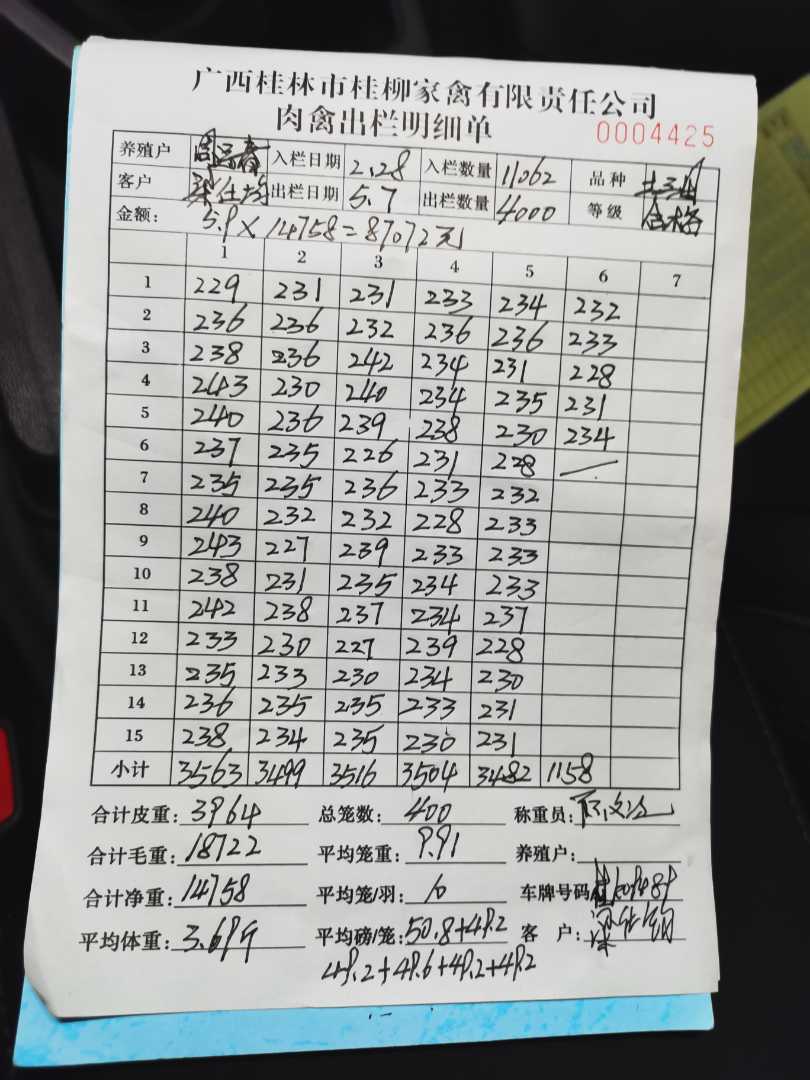 广西桂林市桂柳家禽有限责任公司
肉禽出栏明细单 0004425
养殖户 入栏日期 2.28 入栏数量 11062 品种
客户 出栏日期 5.7 出栏数量 4000 等级 合格
金额: 5.9×14758=87072元
1 2 3 4 5 6 7
1 229 231 231 233 234 232
2 236 236 232 236 236 233
3 238 236 242 234 231 228
4 243 230 240 234 235 231
5 240 236 239 238 230 234
6 237 235 226 231 228 —
7 235 235 236 233 232
8 240 232 232 228 233
9 243 227 239 233 233
10 238 231 235 234 233
11 242 238 237 234 237
12 233 230 227 239 228
13 235 233 230 234 230
14 236 235 235 233 231
15 238 234 235 230 231
小计 3563 3499 3516 3504 3482 1158
合计皮重: 3964 总笼数: 400 称重员:
合计毛重: 18722 平均笼重: 9.91 养殖户:
合计净重: 14758 平均笼/羽: 10 车牌号码
平均体重: 3.69斤 平均磅/笼: 50.8+49.2 客 户:
49.2+49.6+49.2+49.2